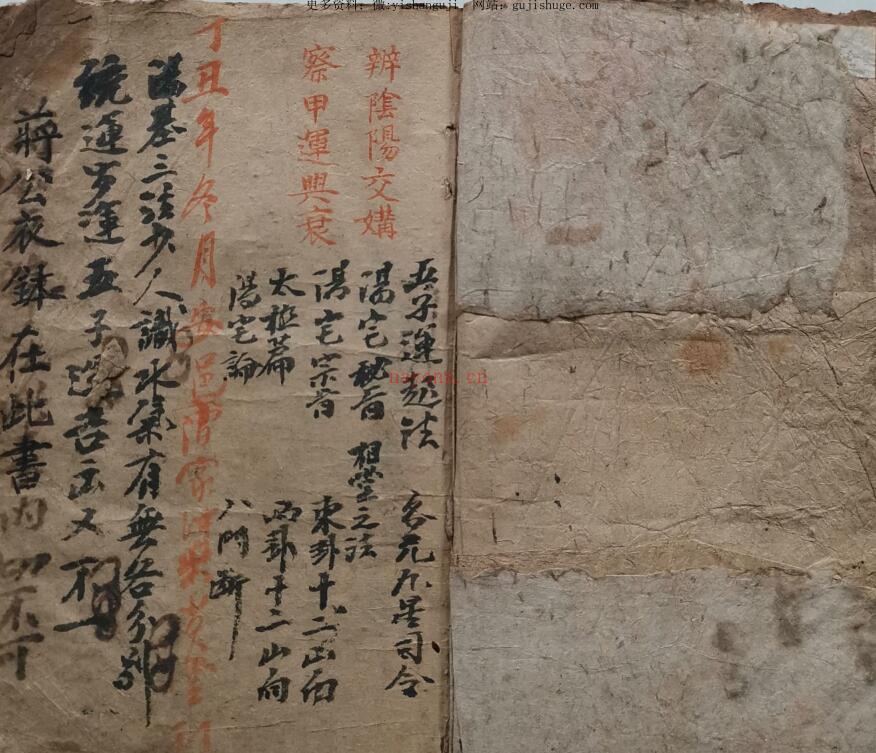 更多资料：微:yishanguji 网站：gujishuge.com
辨陰陽交媾
察甲運興衰
五子運起法 各元九星司令
陽宅秘旨 相宅之法
陽宅宗旨 東卦十二山向
太極篇 西卦十二山向
陽宅論 八門斷
丁丑年冬月 邑
陽基三法少人識水氣有無各分別
統運步運五子運 一
蔣公衣鉢在此書内切不可
nayona.cn